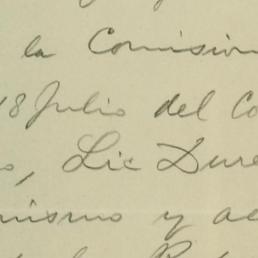 la Comisión
18 Julio del Co
o, Lic Dure
mismo y ac